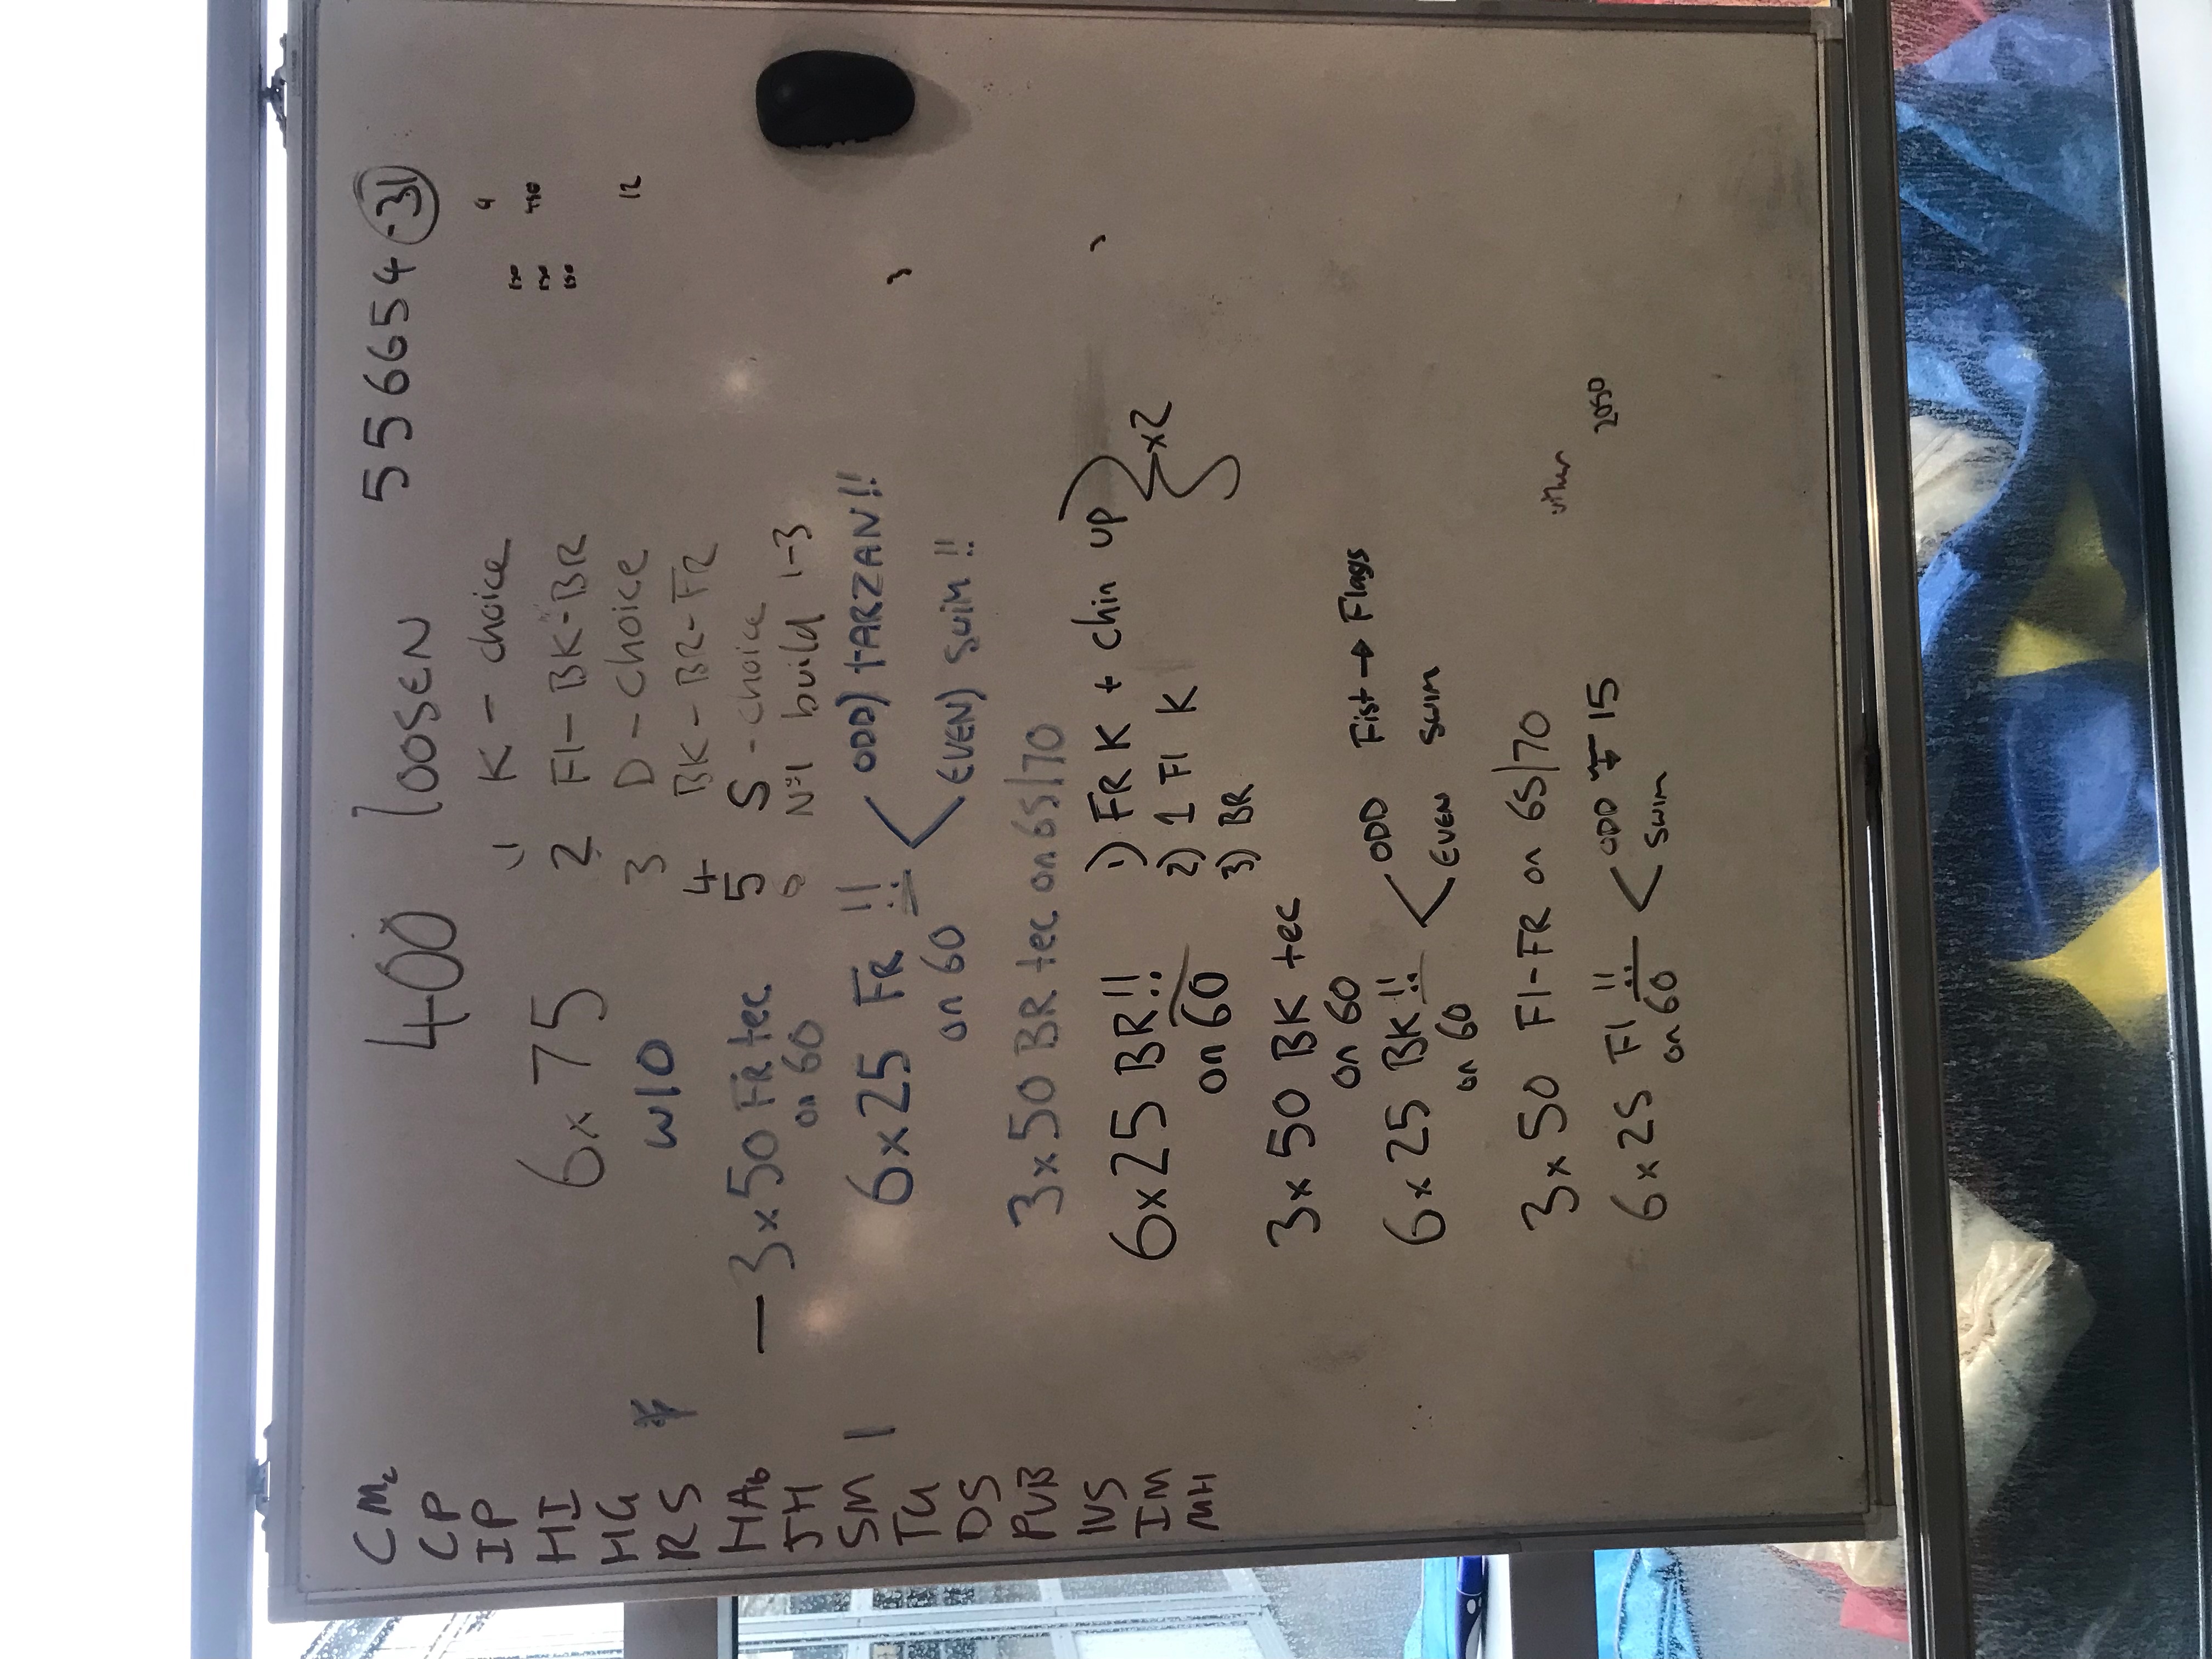 CMc
CP
IP
HI
HG
RS
HAb
JH
SM 1
TG
DS
PVB
IVS
IM
MH
400 loosen 556654-31
6x75
w10
1) K - choice
2 Fl-BK-BR
3 D-choice
4 BK-BR-FR
5 S-choice
N=1 build 1-3
9
12
- 3x50 FR tec
on 60
6x25 FR !!
on 60
ODD) TARZAN!!
EVEN) swim!!
3x50 BR tec on 65/70
6x25 BR!!
on 60
1) FR K + chin up
2) 1 Fl K
3) BR
x2
3x50 BK tec
on 60
6x25 BK!!
on 60
ODD Fist → Flags
EVEN swim
3x50 Fl-FR on 65/70
6x25 Fl !!
on 60
ODD 15
swim
2050